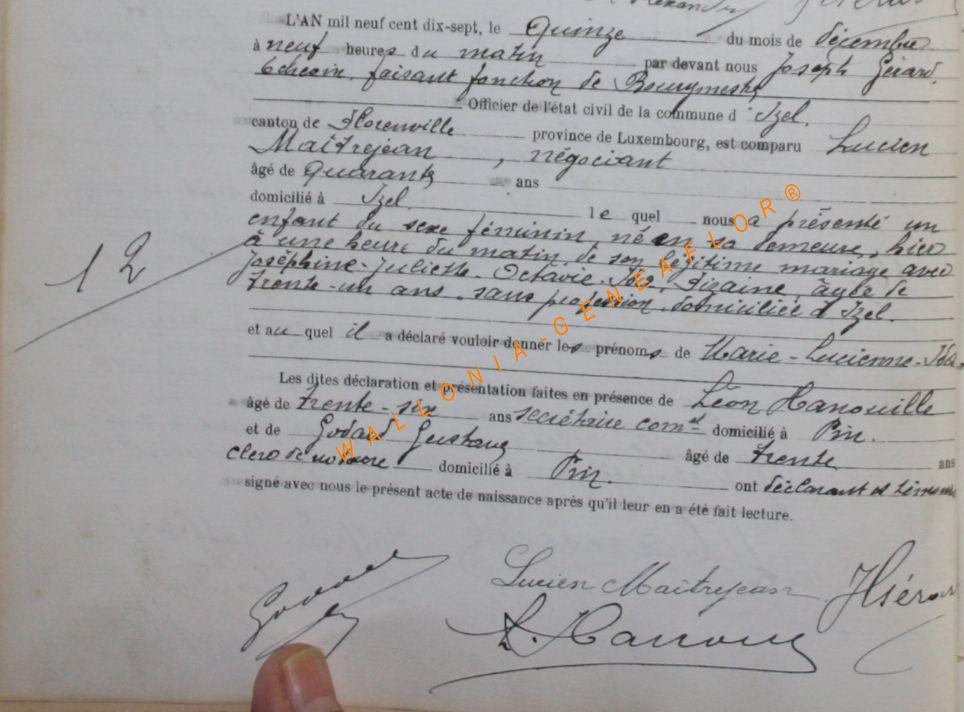 L'AN mil neuf cent dix-sept, le quinze du mois de décembre
à neuf heures du matin par devant nous Joseph Gérard,
Echevin faisant fonction de Bourgmestre
Officier de l'état civil de la commune d'Izel.
canton de Florenville province de Luxembourg, est comparu Lucien
Maîtrejean, négociant
âgé de quarante ans
domicilié à Izel. le quel nous a présenté un
enfant du sexe féminin, né en sa demeure, hier
à une heure du matin, de son légitime mariage avec
Joséphine-Juliette-Octavie-Ida, âgée de
trente-un ans, sans profession, domiciliée à Izel.
12
et au quel il a déclaré vouloir donner les prénoms de Marie-Lucienne-Ida
Les dites déclaration et présentation faites en présence de Léon Hanouille
âgé de trente-six ans secrétaire comal domicilié à Pin.
et de Godard Gustave âgé de trente ans
clerc de notaire domicilié à Pin. ont déclarant et témoins
signé avec nous le présent acte de naissance après qu'il leur en a été fait lecture.
WALLONIA-GENEAFLOR®
Lucien Maîtrejean